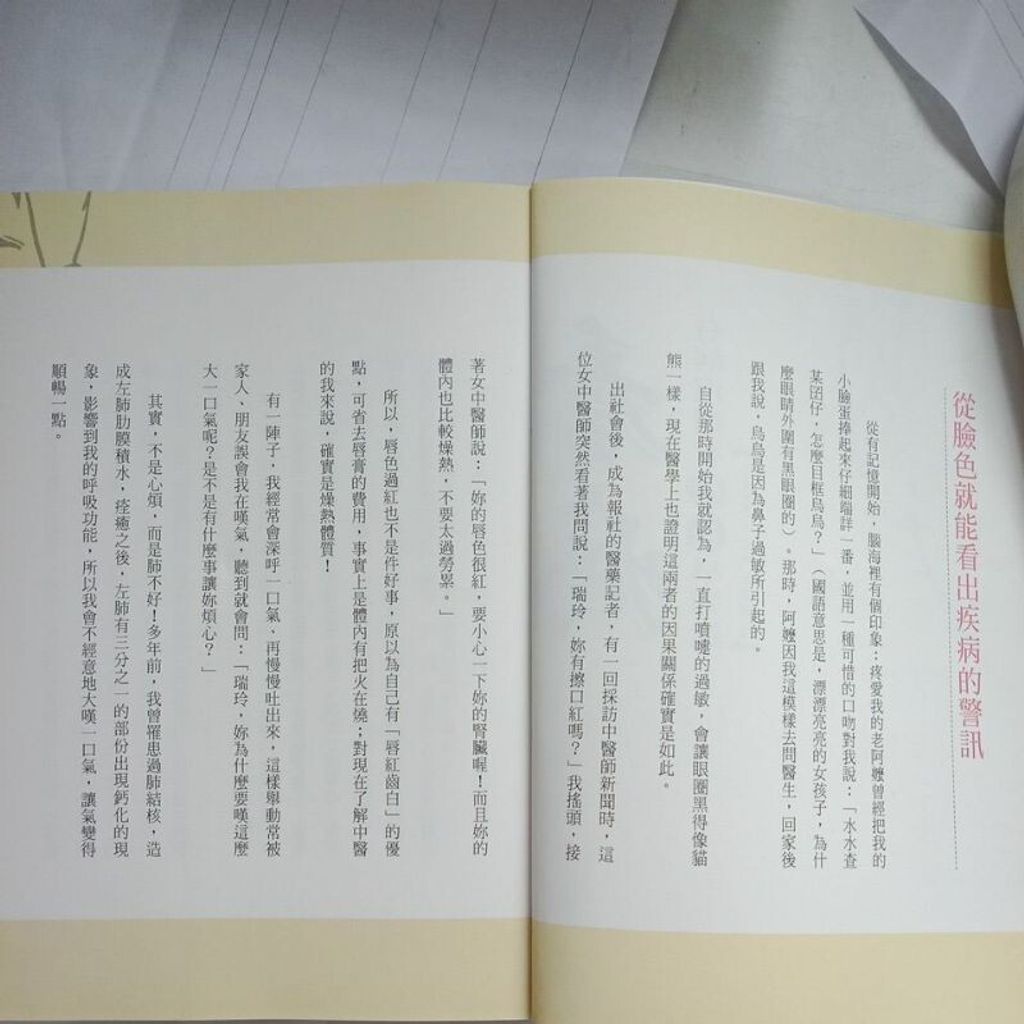 從臉色就能看出疾病的警訊
從有記憶開始，腦海裡有個印象：疼愛我的老阿嬤曾經把我的
小臉蛋捧起來仔細端詳一番，並用一種可惜的口吻對我說：「水水查
某囝仔，怎麼目框烏烏？」（國語意思是，漂漂亮亮的女孩子，為什
麼眼睛外圍有黑眼圈的）。那時，阿嬤因我這模樣去問醫生，回家後
跟我說，烏烏是因為鼻子過敏所引起的。
自從那時開始我就認為，一直打噴嚏的過敏，會讓眼圈黑得像貓
熊一樣，現在醫學上也證明這兩者的因果關係確實是如此。
出社會後，成為報社的醫藥記者，有一回採訪中醫師新聞時，這
位女中醫師突然看著我問說：「瑞玲，妳有擦口紅嗎？」我搖頭，接
著女中醫師說：「妳的唇色很紅，要小心一下妳的腎臟喔！而且妳的
體內也比較燥熱，不要太過勞累。」
所以，唇色過紅也不是件好事，原以為自己有「唇紅齒白」的優
點，可省去唇膏的費用，事實上是體內有把火在燒；對現在了解中醫
的我來說，確實是燥熱體質！
有一陣子，我經常會深呼一口氣、再慢慢吐出來，這樣舉動常被
家人、朋友誤會我在嘆氣，聽到就會問：「瑞玲，妳為什麼要嘆這麼
大一口氣呢？是不是有什麼事讓妳煩心？」
其實，不是心煩，而是肺不好！多年前，我曾罹患過肺結核，造
成左肺肋膜積水，痊癒之後，左肺有三分之一的部份出現鈣化的現
象，影響到我的呼吸功能，所以我會不經意地大嘆一口氣，讓氣變得
順暢一點。